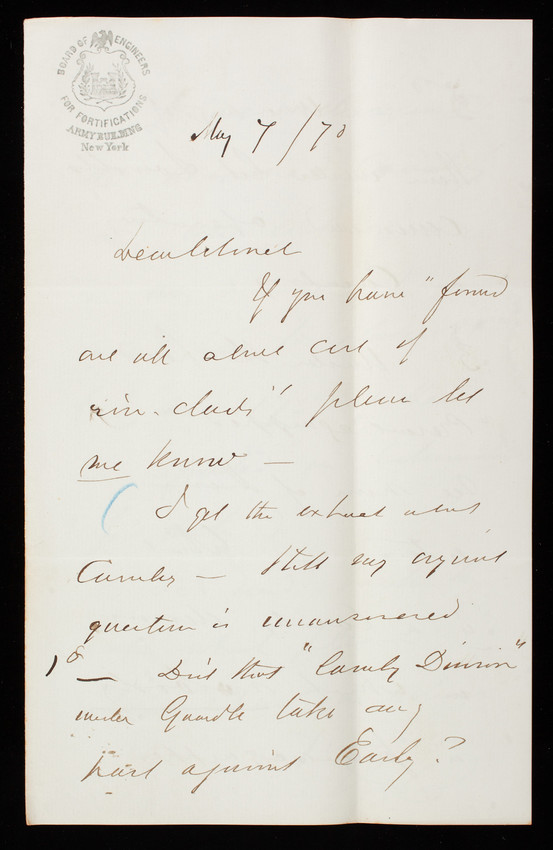 BOARD OF ENGINEERS
FOR FORTIFICATIONS
ARMY BUILDING
New York
May 7/70
Dear Colonel
If you have "found
out all about cost of
iron-clads" please let
me know —
I got the extract about
Cavalry — Still my original
question is unanswered
1º — Did that "Cavalry Division"
under take any
part against Early?